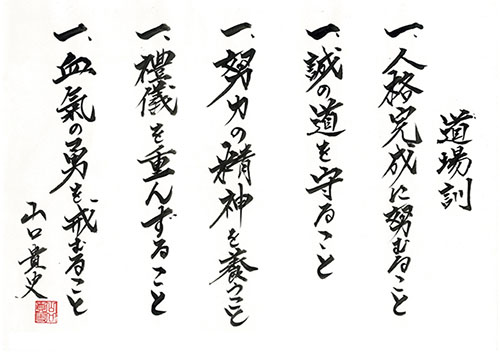 道場訓
一、人格完成に努むること
一、誠の道を守ること
一、努力の精神を養うこと
一、禮儀を重んずること
一、血氣の勇を戒むること
山口貴史